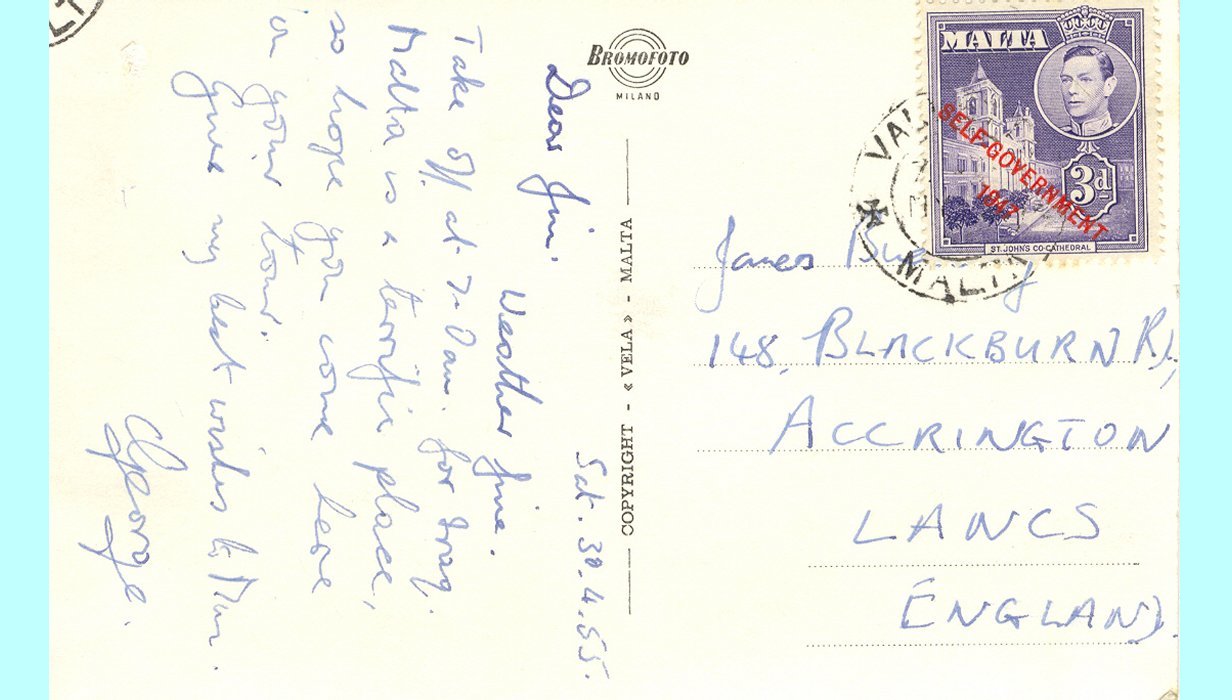 LT
BROMOFOTO
MILANO
Sat. 30.4.55.
Dear Jim.
Weather fine.
Take off at 7.0am. for Iraq.
Malta is a terrific place,
so hope you come here
on your tour.
Give my best wishes to Mum.
George.
COPYRIGHT - « VELA » - MALTA
MALTA
SELF-GOVERNMENT
1947
3d
ST. JOHN'S CO-CATHEDRAL
VAL
MALTA
James
148, BLACKBURN RD,
ACCRINGTON
LANCS
ENGLAND.